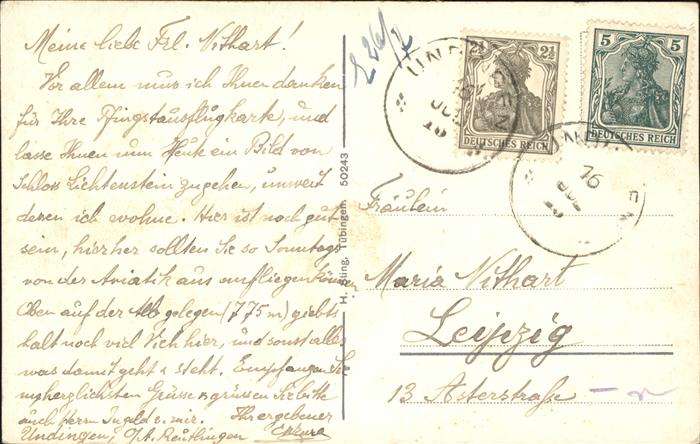 Meine liebe Frl. Nithart!
Vor allem muss ich Ihnen danken
für Ihre Pfingstausflugkarte, und
lasse Ihnen nun Heute ein Bild von
Schloss Lichtenstein zugehen, unweit
deren ich wohne. Hier ist noch gut
sein, hierher sollten Sie so Sonntags
von der Aviatik aus ausfliegen können
Oben auf der Alb gelegen (775 m) giebts
halt noch viel Vieh hier, und sonst alles
was damit geht & steht. Empfangen Sie
herzlichsten Grüsse & grüssen Sie bitte
auch Herrn v. mir. Ihr ergebener
Undingen, O/A. Reutlingen
H. Sting, Tübingen. 50243
2½
DEUTSCHES REICH
5
DEUTSCHES REICH
UNDINGEN
Fräulein
Maria Nithart
Leipzig
13 Asterstraße